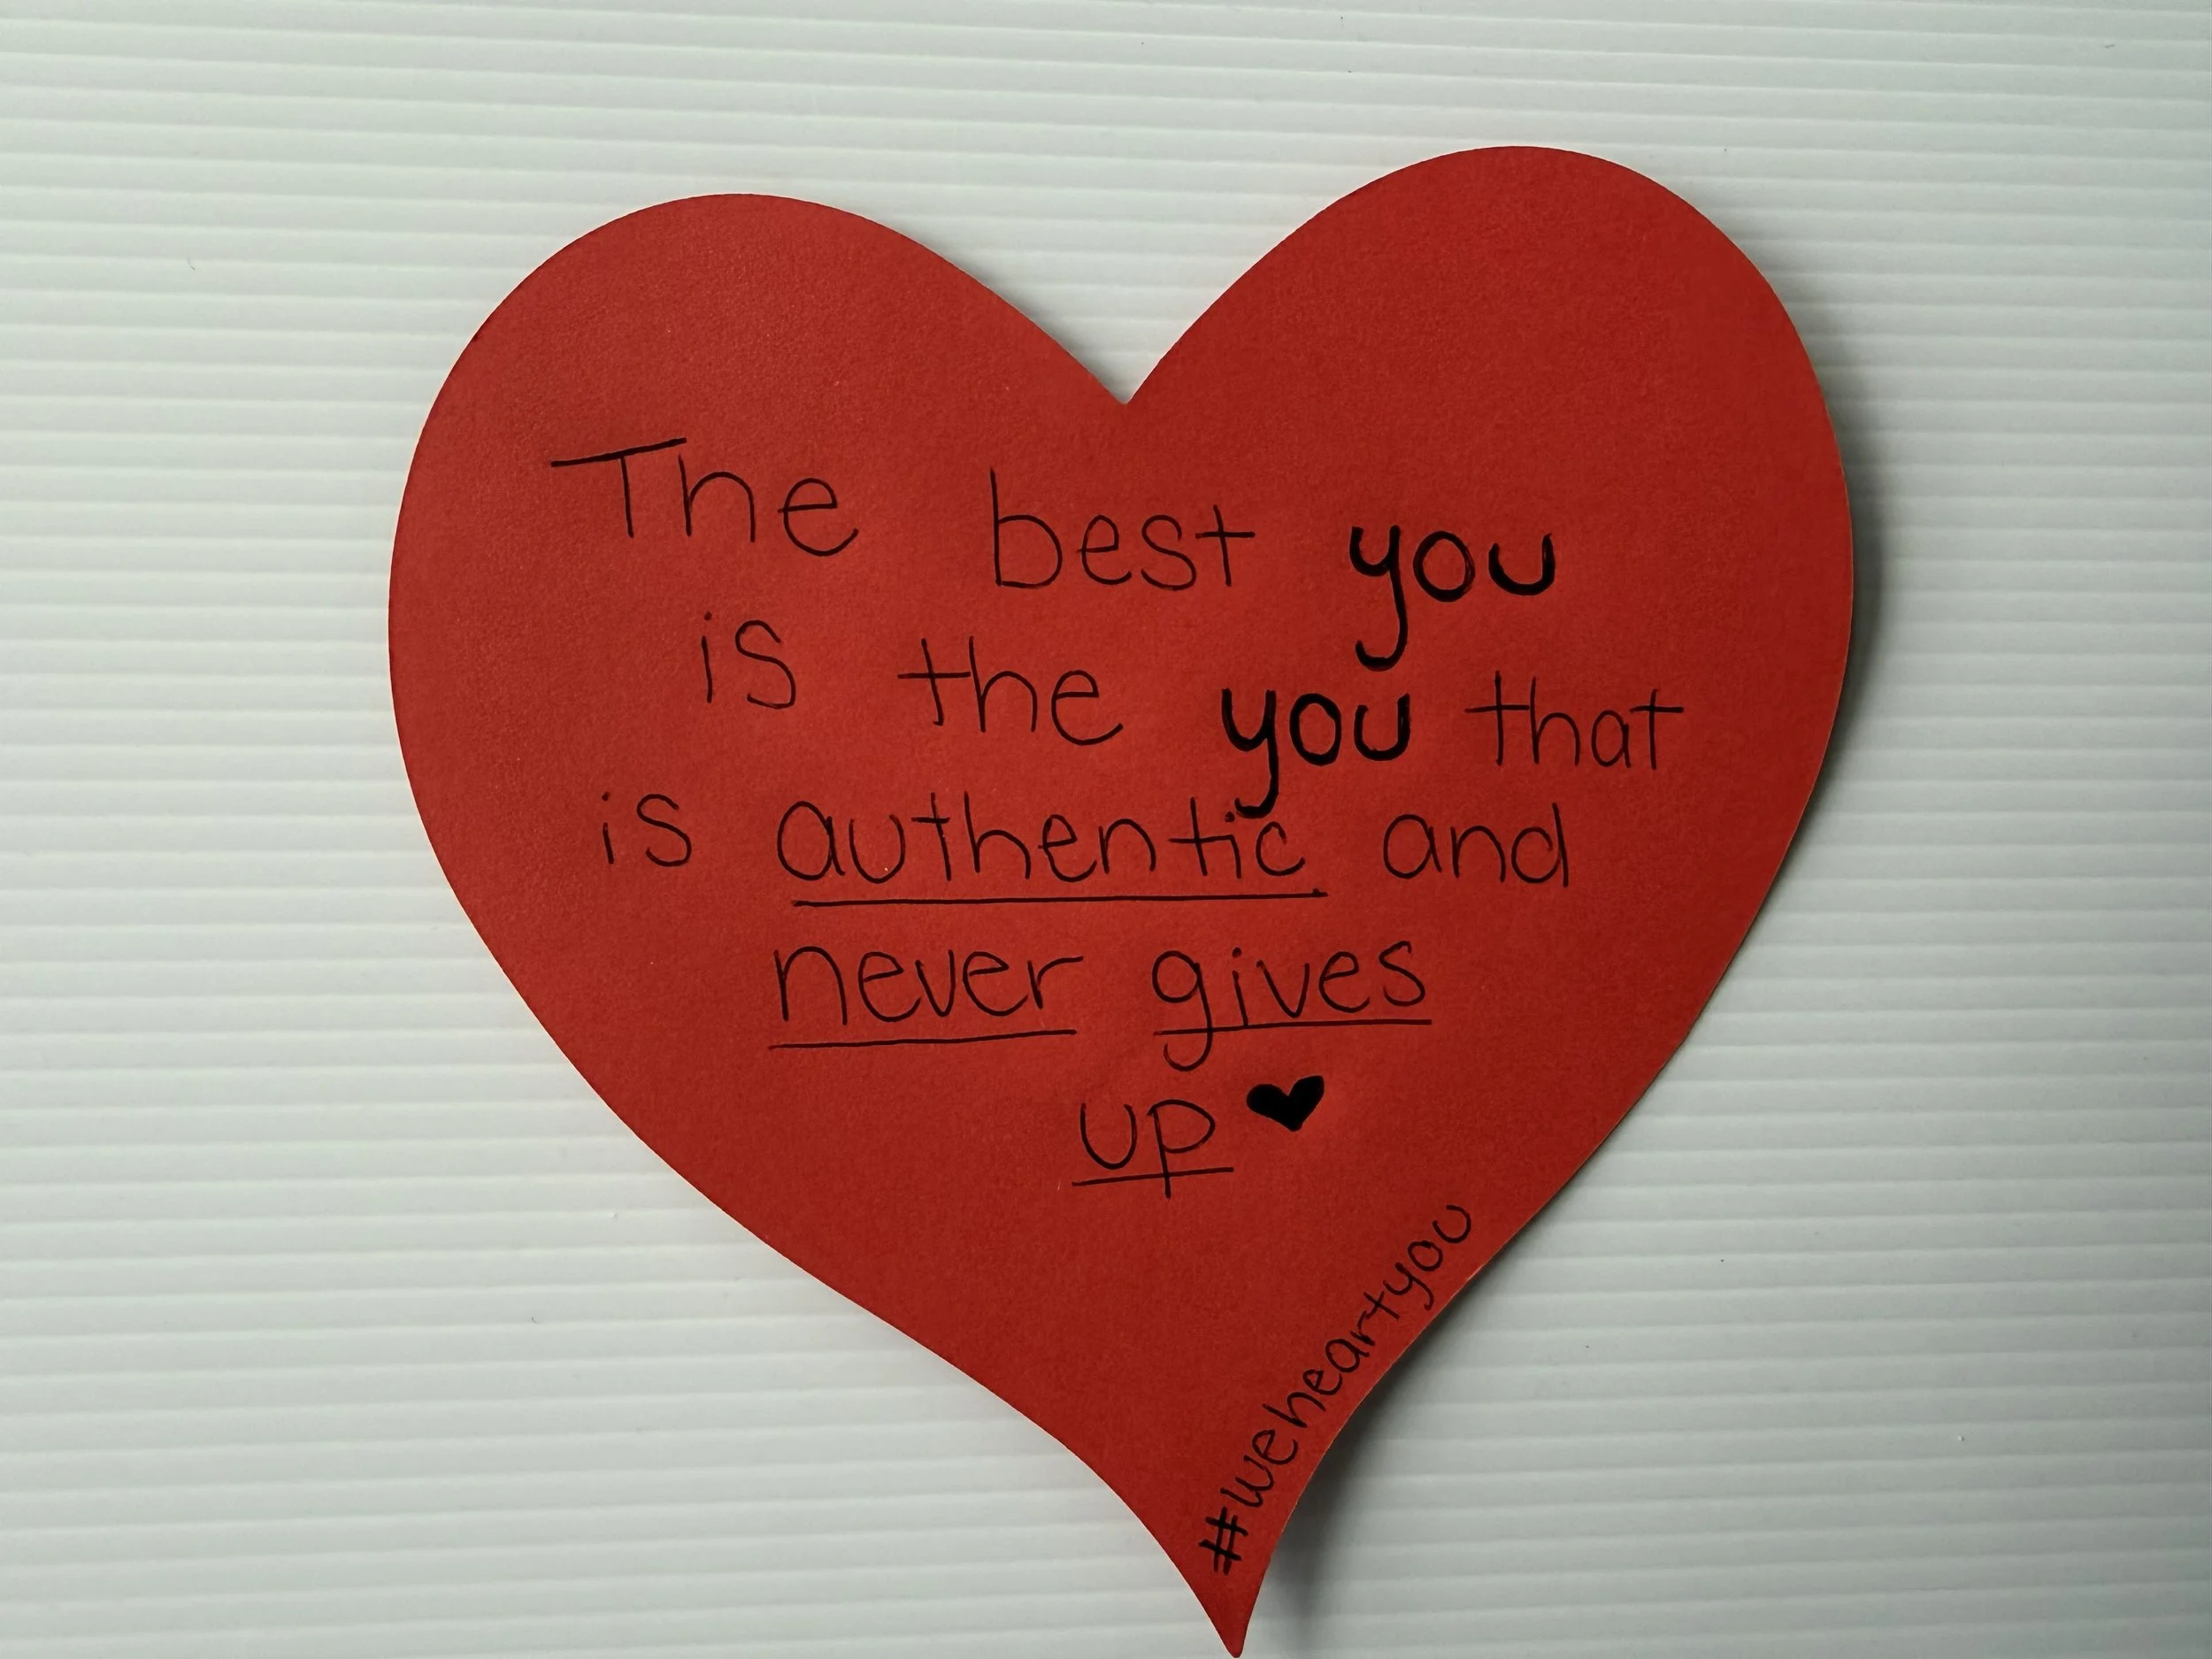 The best you
is the you that
is authentic and
never gives
up ♥
#weheartyou